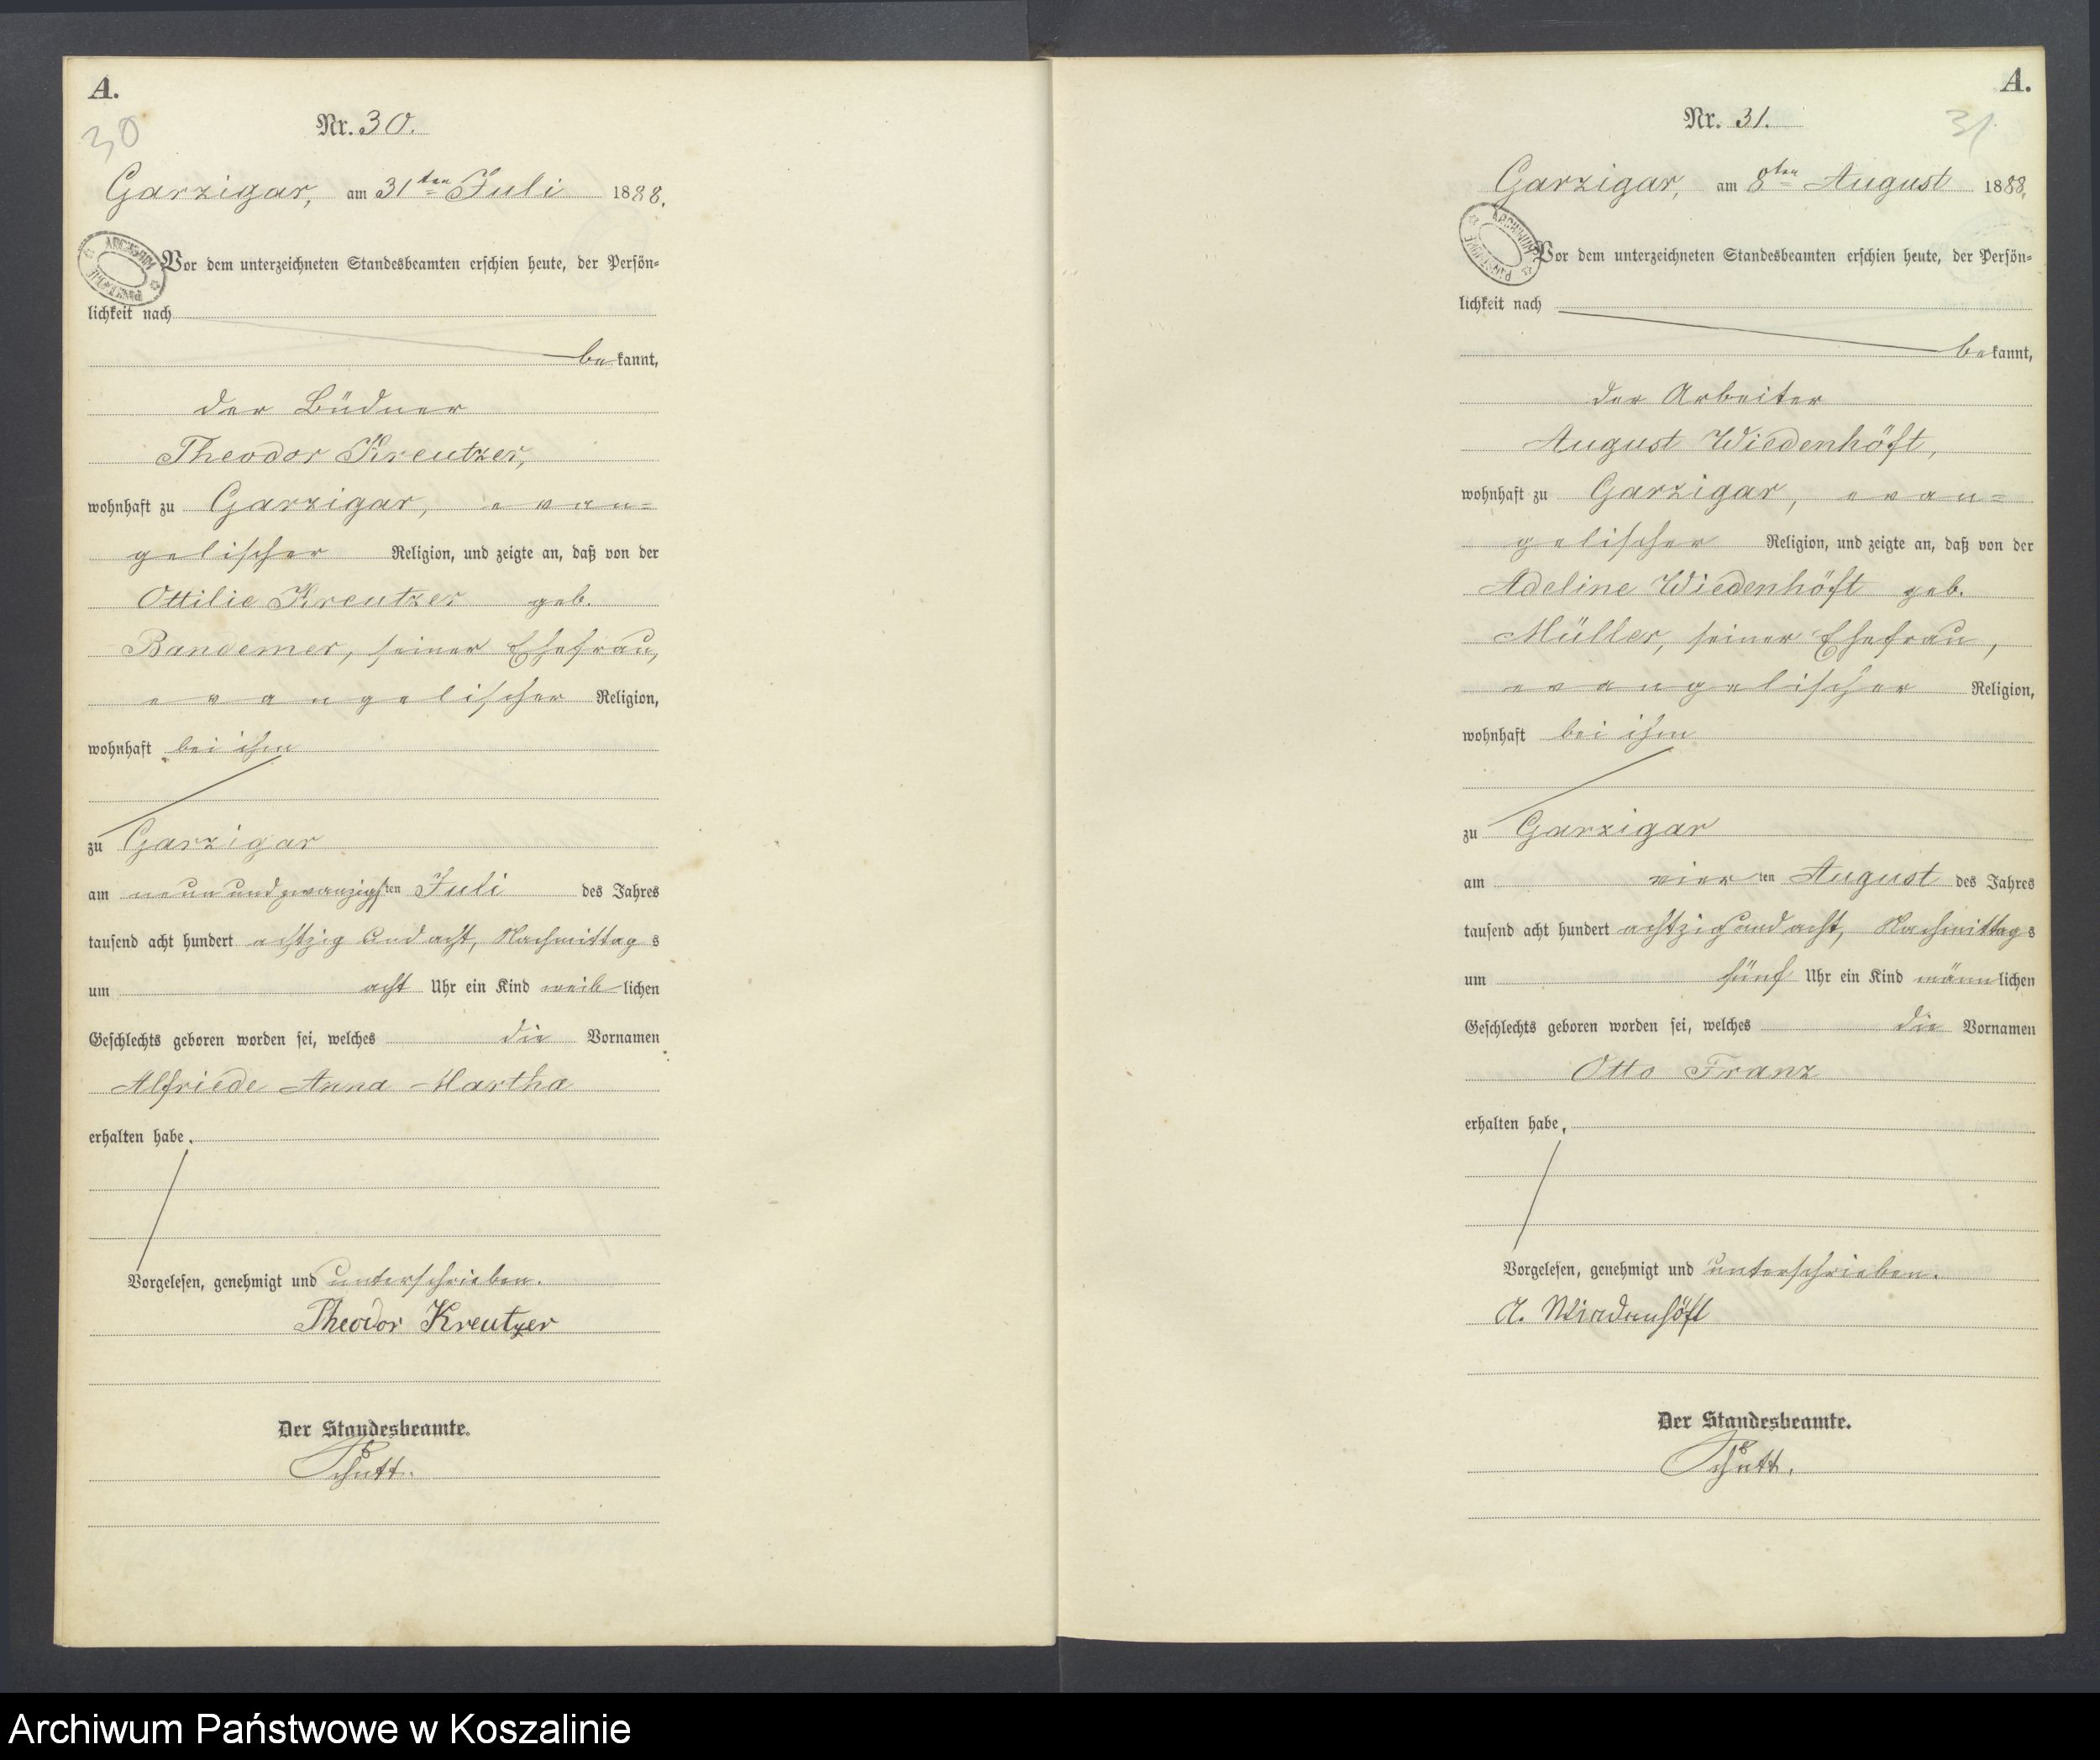 A.
30
Nr. 30.
Garzigar, am 31ten Juli 1888.
Vor dem unterzeichneten Standesbeamten erschien heute, der Persön=
lichkeit nach
bekannt,
der Büdner
Theodor Kreutzer,
wohnhaft zu Garzigar, evan=
gelischer Religion, und zeigte an, daß von der
Ottilie Kreutzer geb.
Bandemer, seiner Ehefrau,
evangelischer Religion,
wohnhaft bei ihm
zu Garzigar
am neunundzwanzigsten Juli des Jahres
tausend acht hundert achtzig und acht, Nachmittags
um acht Uhr ein Kind weiblichen
Geschlechts geboren worden sei, welches die Vornamen
Alfriede Anna Martha
erhalten habe.
Vorgelesen, genehmigt und unterschrieben.
Theodor Kreutzer
Der Standesbeamte.
Schutt.
A.
31
Nr. 31.
Garzigar, am 8ten August 1888.
ARCHIWUM
Vor dem unterzeichneten Standesbeamten erschien heute, der Persön=
lichkeit nach
bekannt,
der Arbeiter
August Wiedenhöft,
wohnhaft zu Garzigar, evan=
gelischer Religion, und zeigte an, daß von der
Adeline Wiedenhöft geb.
Müller, seiner Ehefrau,
evangelischer Religion,
wohnhaft bei ihm
zu Garzigar
am vierten August des Jahres
tausend acht hundert achtzig und acht, Nachmittags
um fünf Uhr ein Kind männlichen
Geschlechts geboren worden sei, welches die Vornamen
Otto Franz
erhalten habe,
Vorgelesen, genehmigt und unterschrieben.
A. Wiedenhöft
Der Standesbeamte.
Schutt.
Archiwum Państwowe w Koszalinie